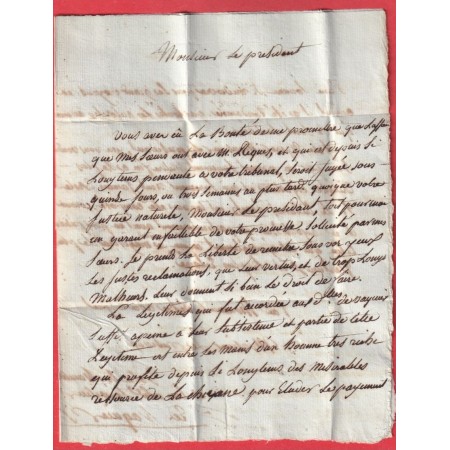 Monsieur Le président
Vous avez eu La Bonté de me promettre que L'affaire
que Mes Sœurs ont avec M. Riquet, et qui est depuis si
Longtems pendante a votre tribunal, seroit jugée sous
quinze jours, ou trois semaines au plus tard quoique votre
Justice naturelle, Monsieur Le président soit pour moi
un garant infaillible de votre promesse sollicité par mes
sœurs. Je prends La Liberté de remettre sous vos yeux
Les justes réclamations, que Leur vertus, et de trop Longs
Malheurs Leur donnent si bien Le droit de faire.
La Legitimes qui fut accordée aux dlles de
suffit a peine a Leur subsistance et partie de cette
Legitime est entre Les Mains d'un homme tres riche
qui profite depuis Longtems des misérables
ressources de La chicane, pour Eluder Le payement